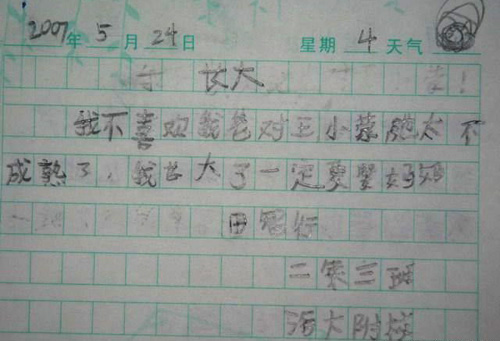 2007年 5月 24日 星期 4 天气
大
我不喜欢我爸对王小太不
成熟了，我大了一定要娶妈妈
田
二年三班
海大附校